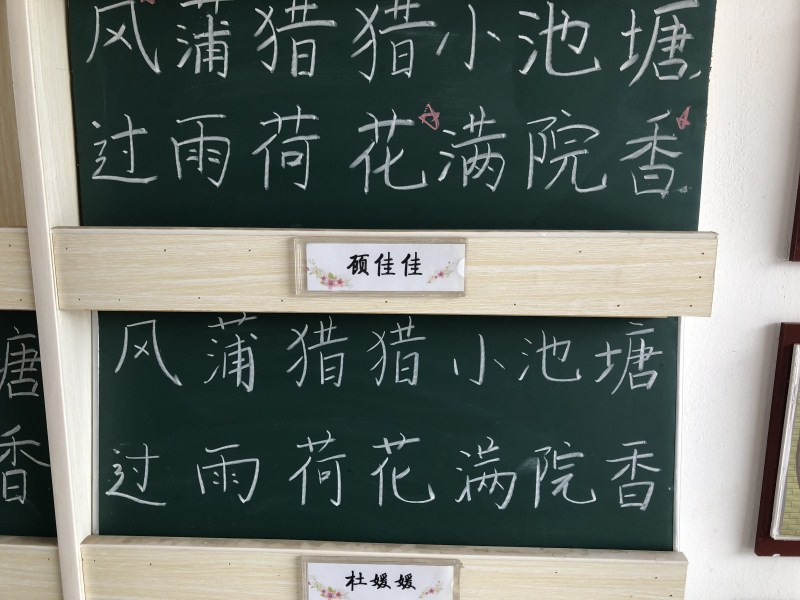 风蒲猎猎小池塘
过雨荷花满院香
顾佳佳
风蒲猎猎小池塘
过雨荷花满院香
杜媛媛
塘
香